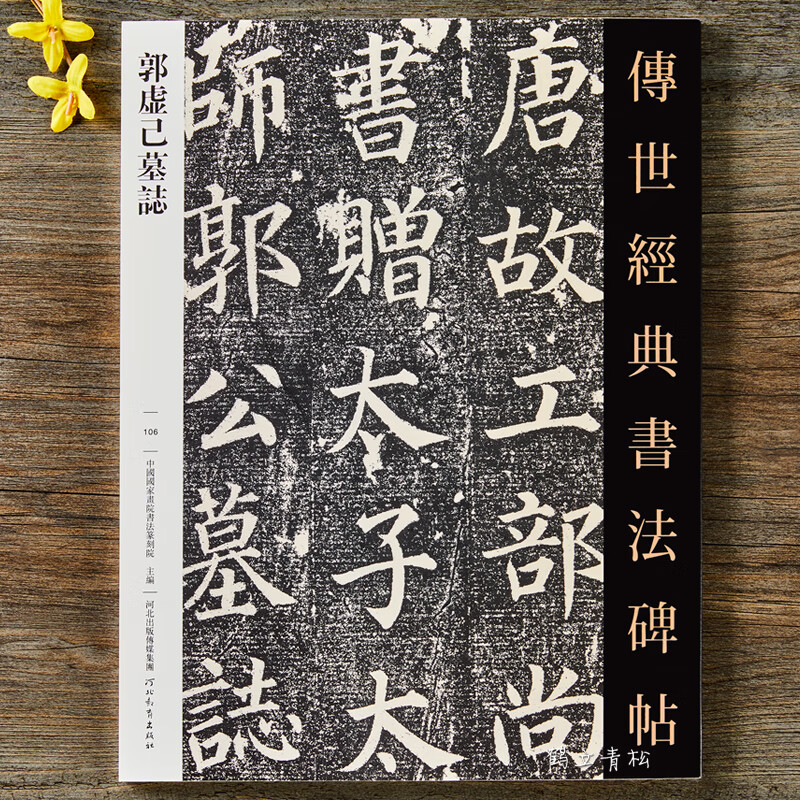 傳世經典書法碑帖
唐故工部尚
書贈太子太
師郭公墓誌
郭虚己墓誌
106
中國國家畫院書法篆刻院 主編
河北出版傳媒集團
河北教育出版社
鶴立青松